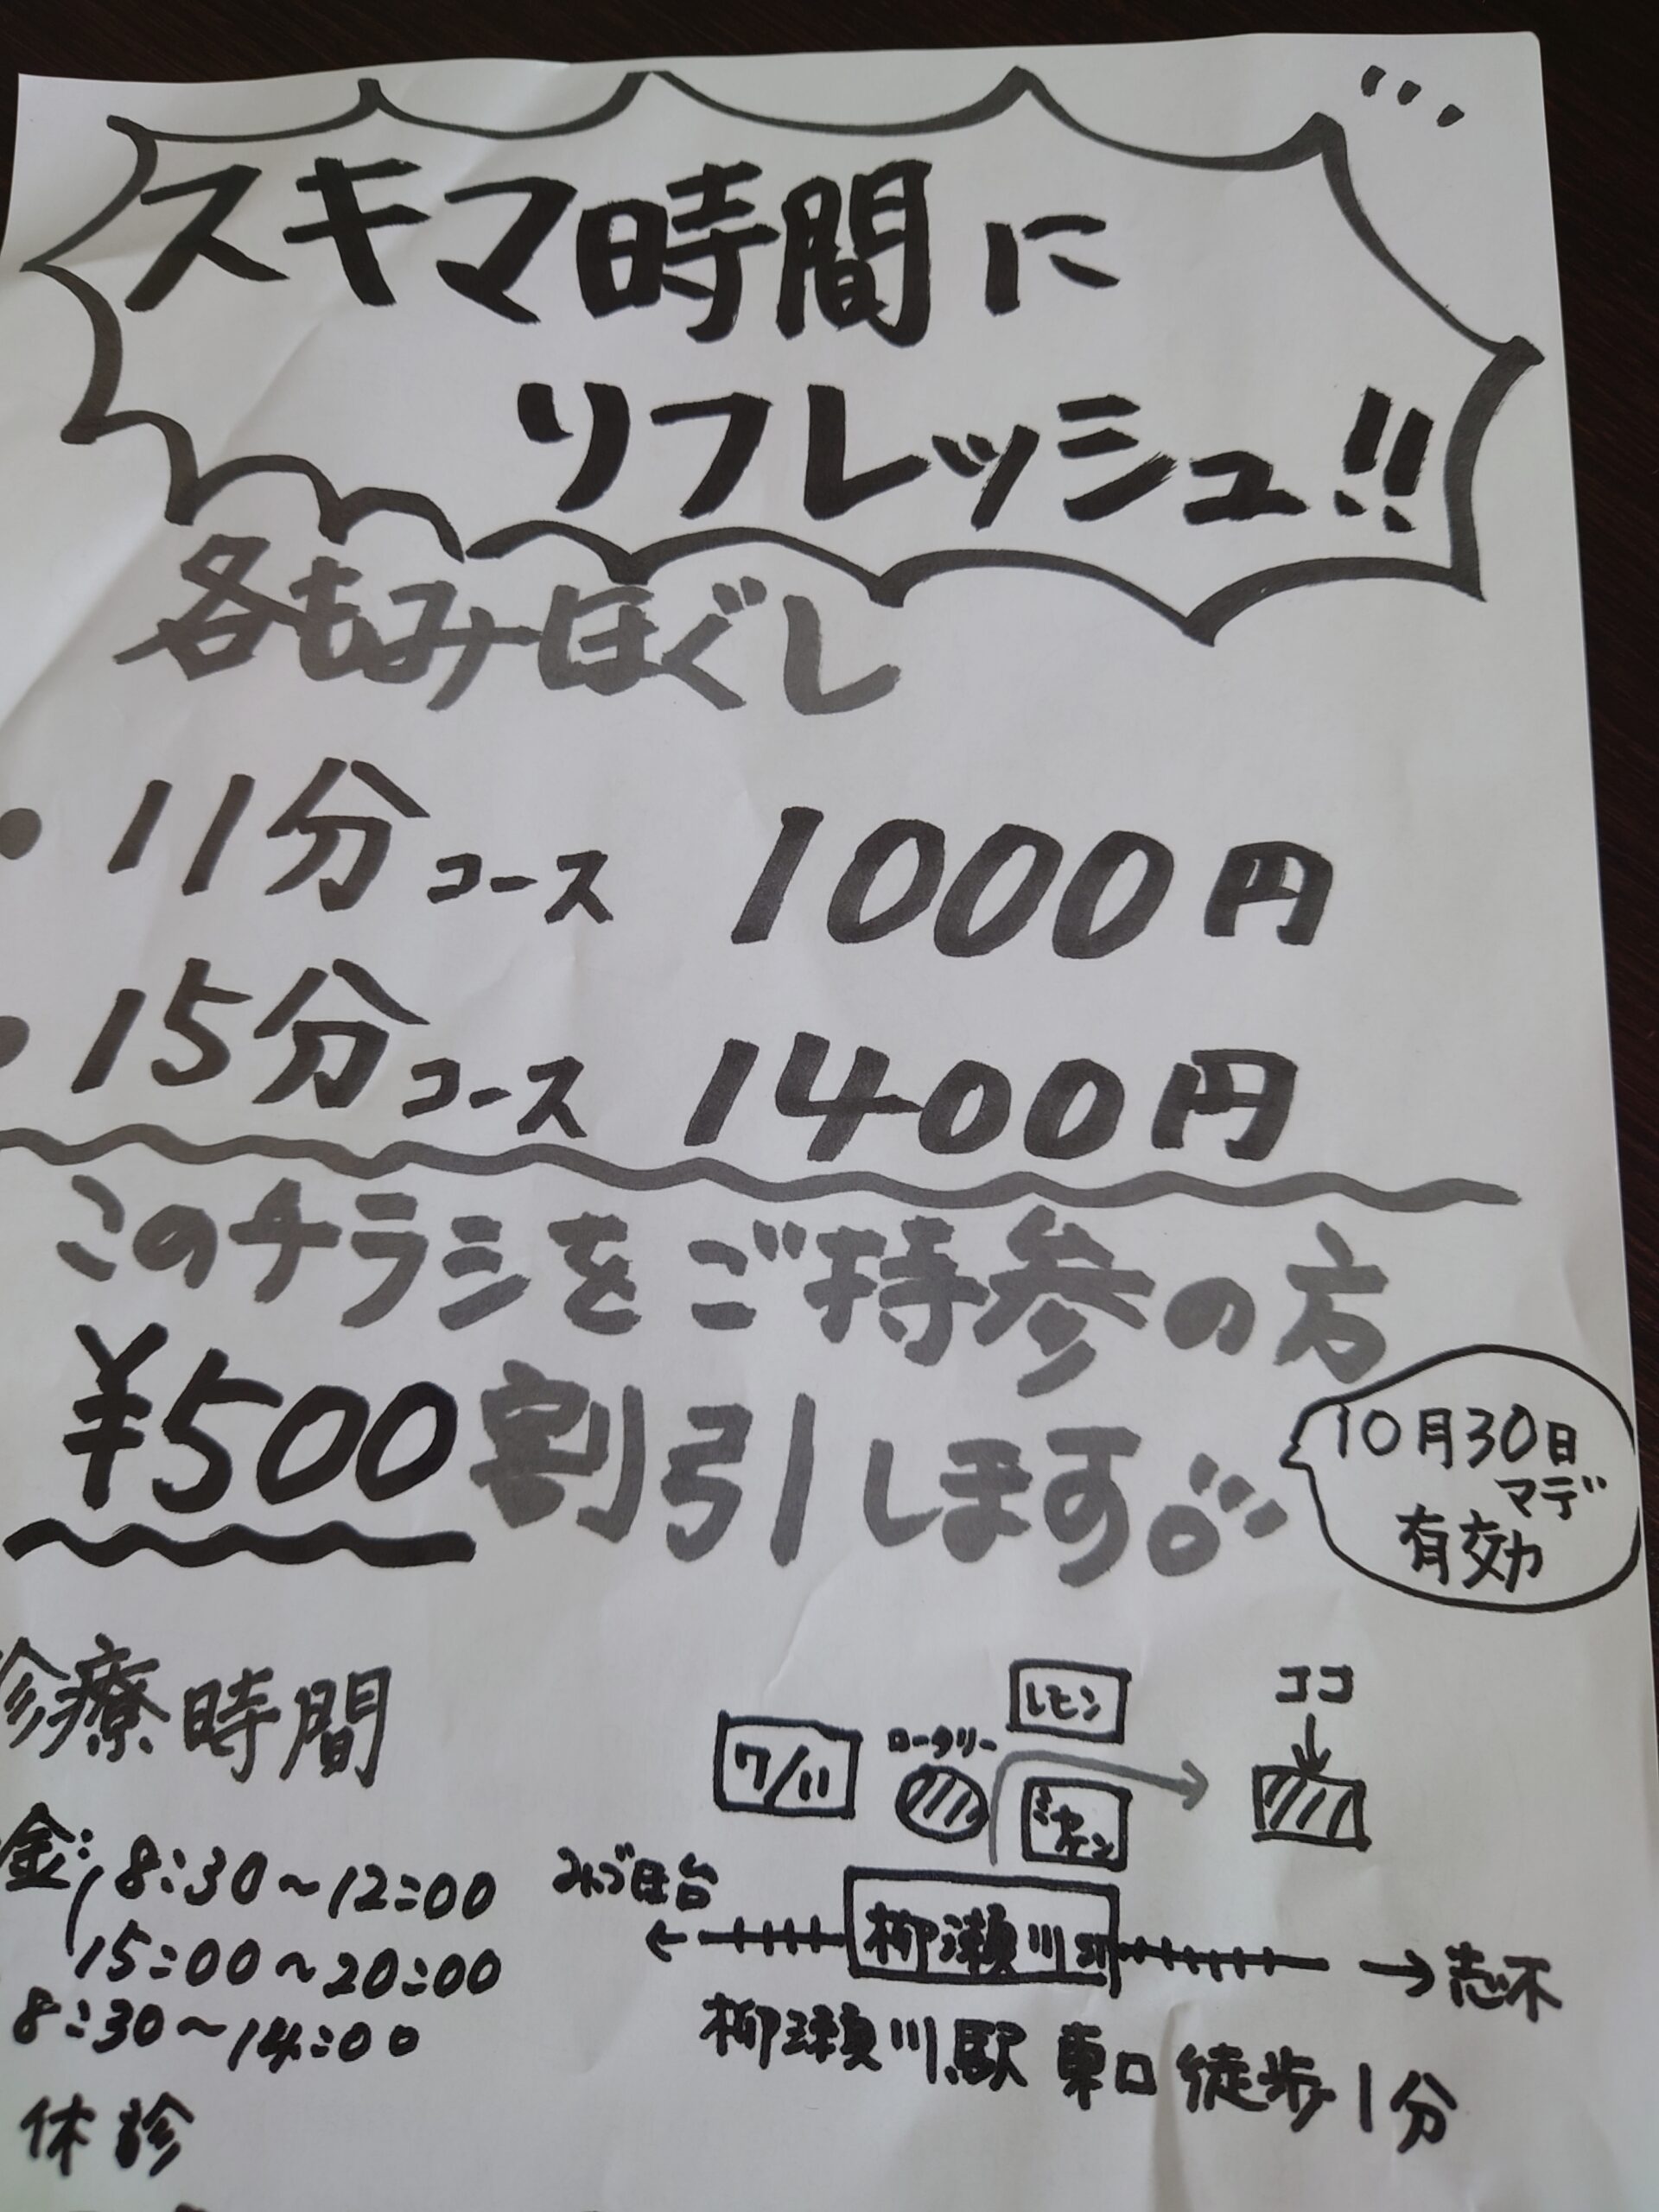 スキマ時間に
リフレッシュ!!
各もみほぐし
・11分コース 1000円
・15分コース 1400円
このチラシをご持参の方
¥500割引します。
10月30日
マデ
有効
診療時間
金: 8:30~12:00
15:00~20:00
8:30~14:00
休診
ココ
レモン
7/11
ロータリー
みずほ台
柳瀬川
→志木
柳瀬川駅 東口 徒歩1分